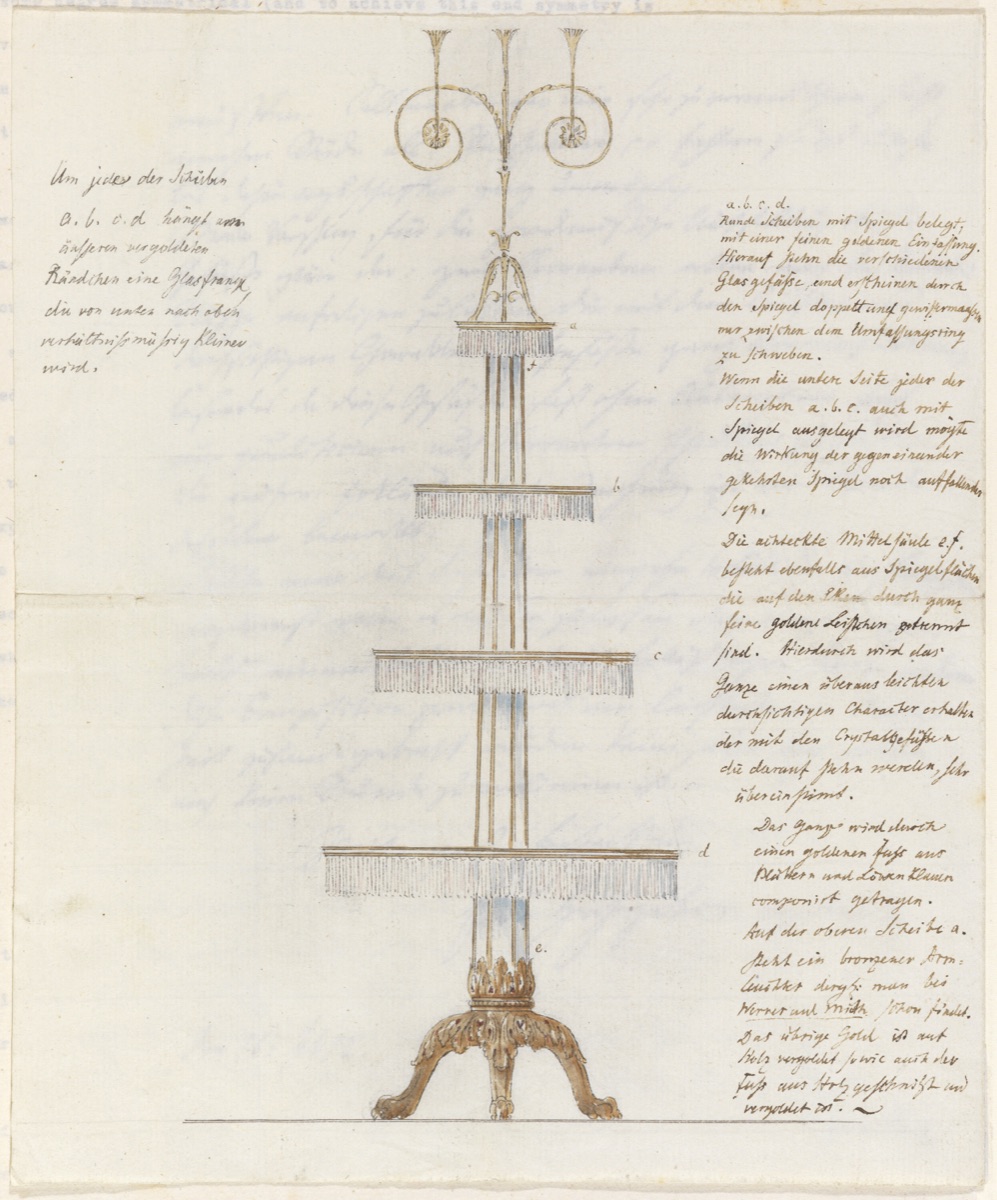 Um jede der Scheiben
a. b. c. d hängt am
äusseren vergoldeten
Rändchen eine Glasfranze,
die von unten nach oben
verhältnißmäßig kleiner
wird.
a
f
b
c
d
e.
a. b. c. d.
Runde Scheiben mit Spiegel belegt,
mit einer feinen goldenen Einfassung.
Hierauf stehn die verschiedenen
Glasgefäße, und erscheinen durch
den Spiegel doppelt und gewißermaaßen
nur zwischen dem Umfassungsring
zu schweben.
Wenn die untere Seite jeder der
Scheiben a. b. c. auch mit
Spiegel ausgelegt wird mögte
die Wirkung der gegeneinander
gekehrten Spiegel noch auffallender
seyn.
Die achteckte Mittelsäule e. f.
besteht ebenfalls aus Spiegelflächen
die auf den Ekken durch ganz
feine goldene Leistchen getrennt
sind. Hierdurch wird das
Ganze einen überaus leichten
durchsichtigen Character erhalten
der mit den Crystalgefäßen
die darauf stehn werden, sehr
übereinstimt.
Das Ganze wird durch
einen goldenen Fuß aus
Blättern und Löwenklauen
componirt getragen.
Auf der oberen Scheibe a.
steht ein bronzener Arm=
leuchter dergl: man bei
Werner und Mieth schon findet.
Das übrige Gold ist auf
Holz vergoldet sowie auch der
Fuß aus Holz geschnitzt und
vergoldet ist.